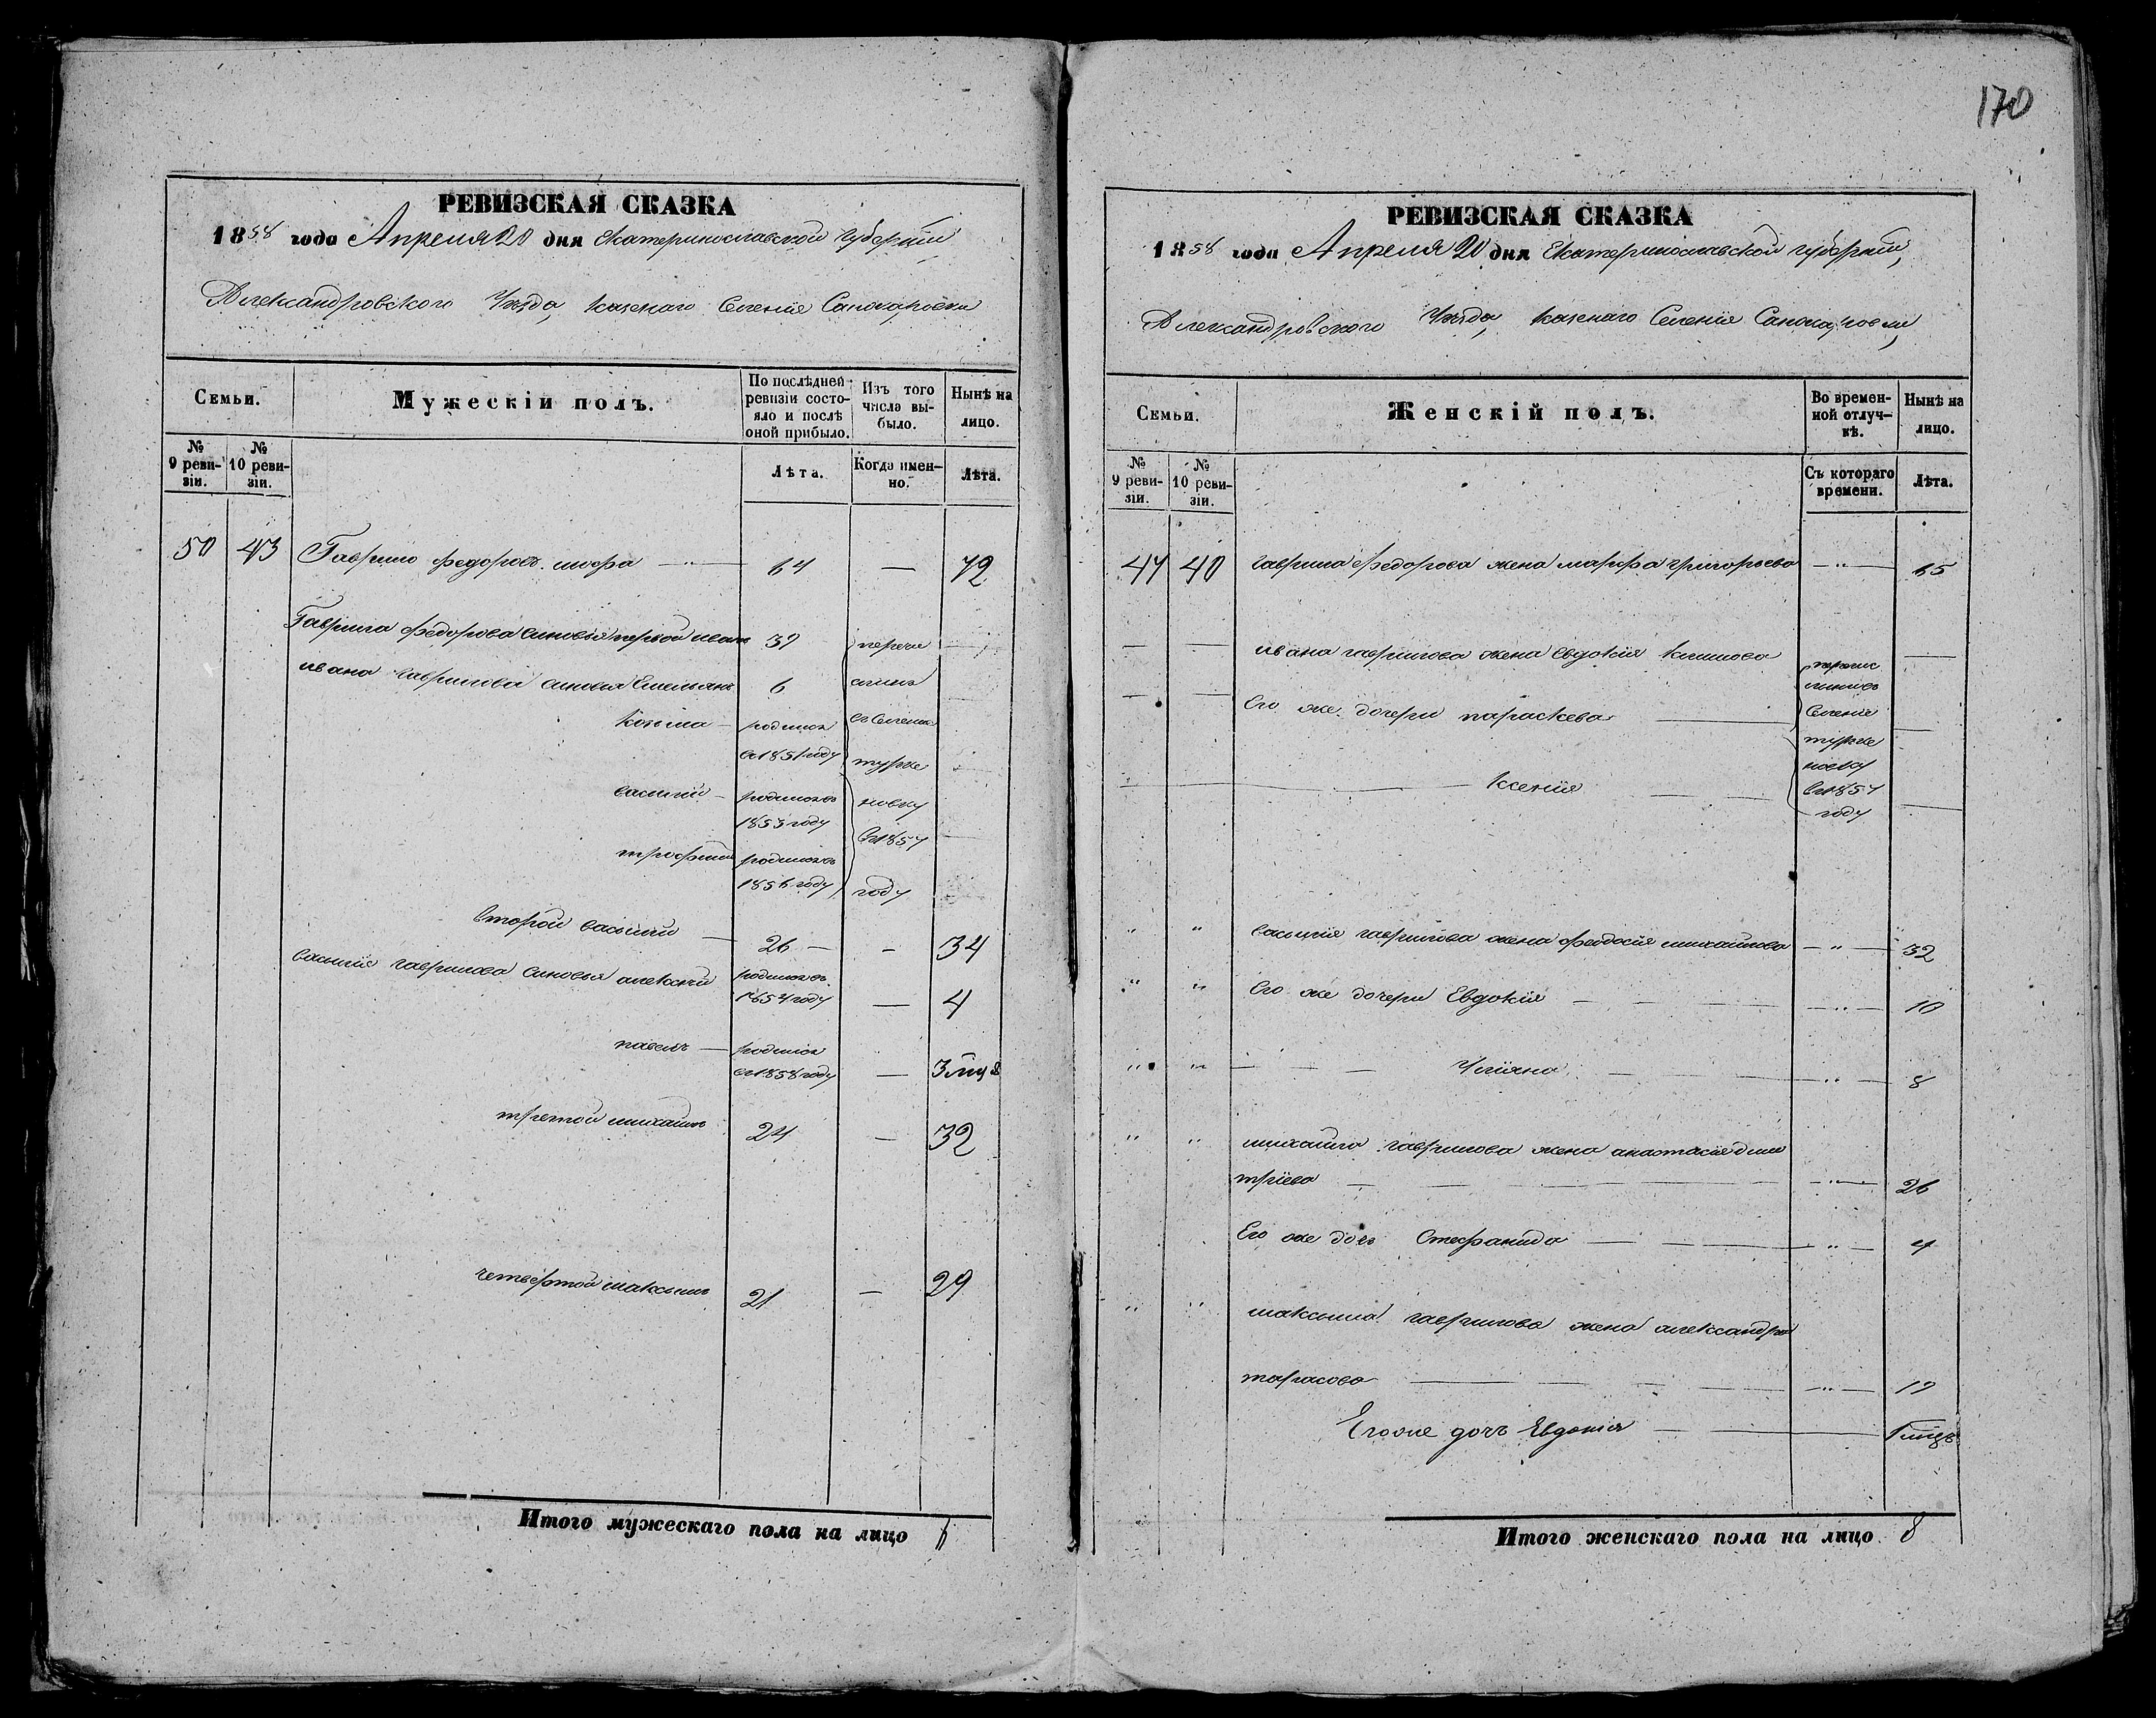 РЕВИЗСКАЯ СКАЗКА
1858 года Апреля 20 дня Екатеринославской Губернии
Александровского Уезда, казенаго Селения
Семьи.
Мужескій полъ.
По послѣдней ревизіи состояло и послѣ оной прибыло.
Изъ того числа выбыло.
Нынѣ на лицо.
№ 9 ревизіи.
№ 10 ревизіи.
Лѣта.
Когда именно.
Лѣта.
50 43 Гаврило Федоровъ 64 — 72
Гаврила Федорова синовья первой иванъ 39
ивана гаврилова синовья Емельянъ 6
козьма — родился
въ 1851 году
василий — родился въ
1853 году
трофимъ родился въ
1856 году
перечи
слинъ
въ Селение
турке
новку
въ 1857
году
второй василий — 26 — - 34
василия гаврилова синовья алексей родился въ
1854 году — 4
павелъ — родился
въ 1858 году — 3 мця
третой михайло 24 — 32
четвертой максимъ 21 — 29
Итого мужескаго пола на лицо 6
170
РЕВИЗСКАЯ СКАЗКА
1858 года Апреля 20 дня Екатеринославской губернии,
Александровского Уезда, казенаго Селения
Семьи.
Женскій полъ.
Во временной отлучкѣ.
Нынѣ на лицо.
№ 9 ревизіи.
№ 10 ревизіи.
Съ котораго времени.
Лѣта.
40 гаврила Федорова жена марфа григорьева — " — 65
— — ивана гаврилова жена Евдокия климова —
— — Его же дочери параскева —
— Ксения —
перечис
лины въ
Селение
турке
новку
въ 1857
году
" " василия гаврилова жена феодосия михайлова — " — 32
" " Его же дочери Евдокия — " — 10
" " — Улияна — " — 8
" " михайла гаврилова жена анастасия дми
триева — " — 26
Его же дочь Стефанида — " — 4
" " максима гаврилова жена александра
тарасова — " — 19
Егоже дочь Евдокия — 1 мцъ
Итого женскаго пола на лицо 8